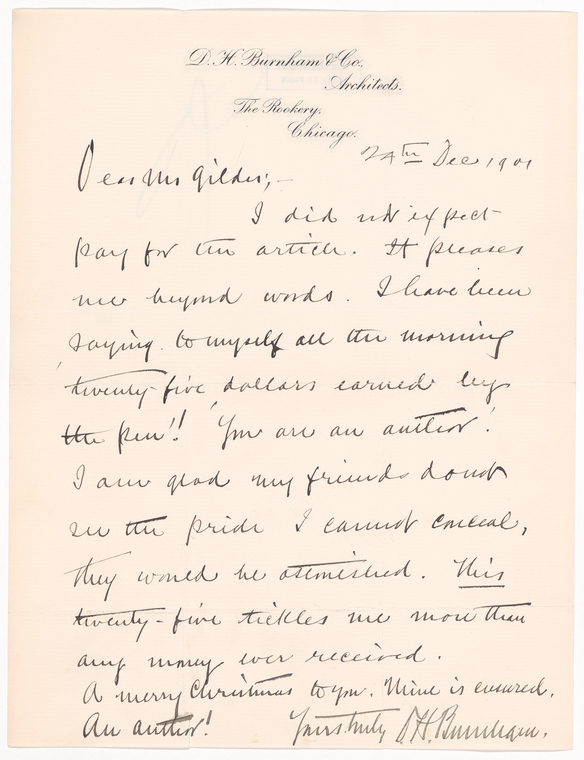 D. H. Burnham & Co.
Architects.
The Rookery,
Chicago.
24th Dec 1901
Dear Mr Gilder;—
I did not expect
pay for the article. It pleases
me beyond words. I have been
saying to myself all the morning
'twenty-five dollars earned by
the pen'! 'You are an author'!
I am glad my friends do not
see the pride I cannot conceal,
they would be astonished. This
twenty-five tickles me more than
any money ever received.
A merry Christmas to you. Mine is ensured.
An author!
Yours truly D. H. Burnham.